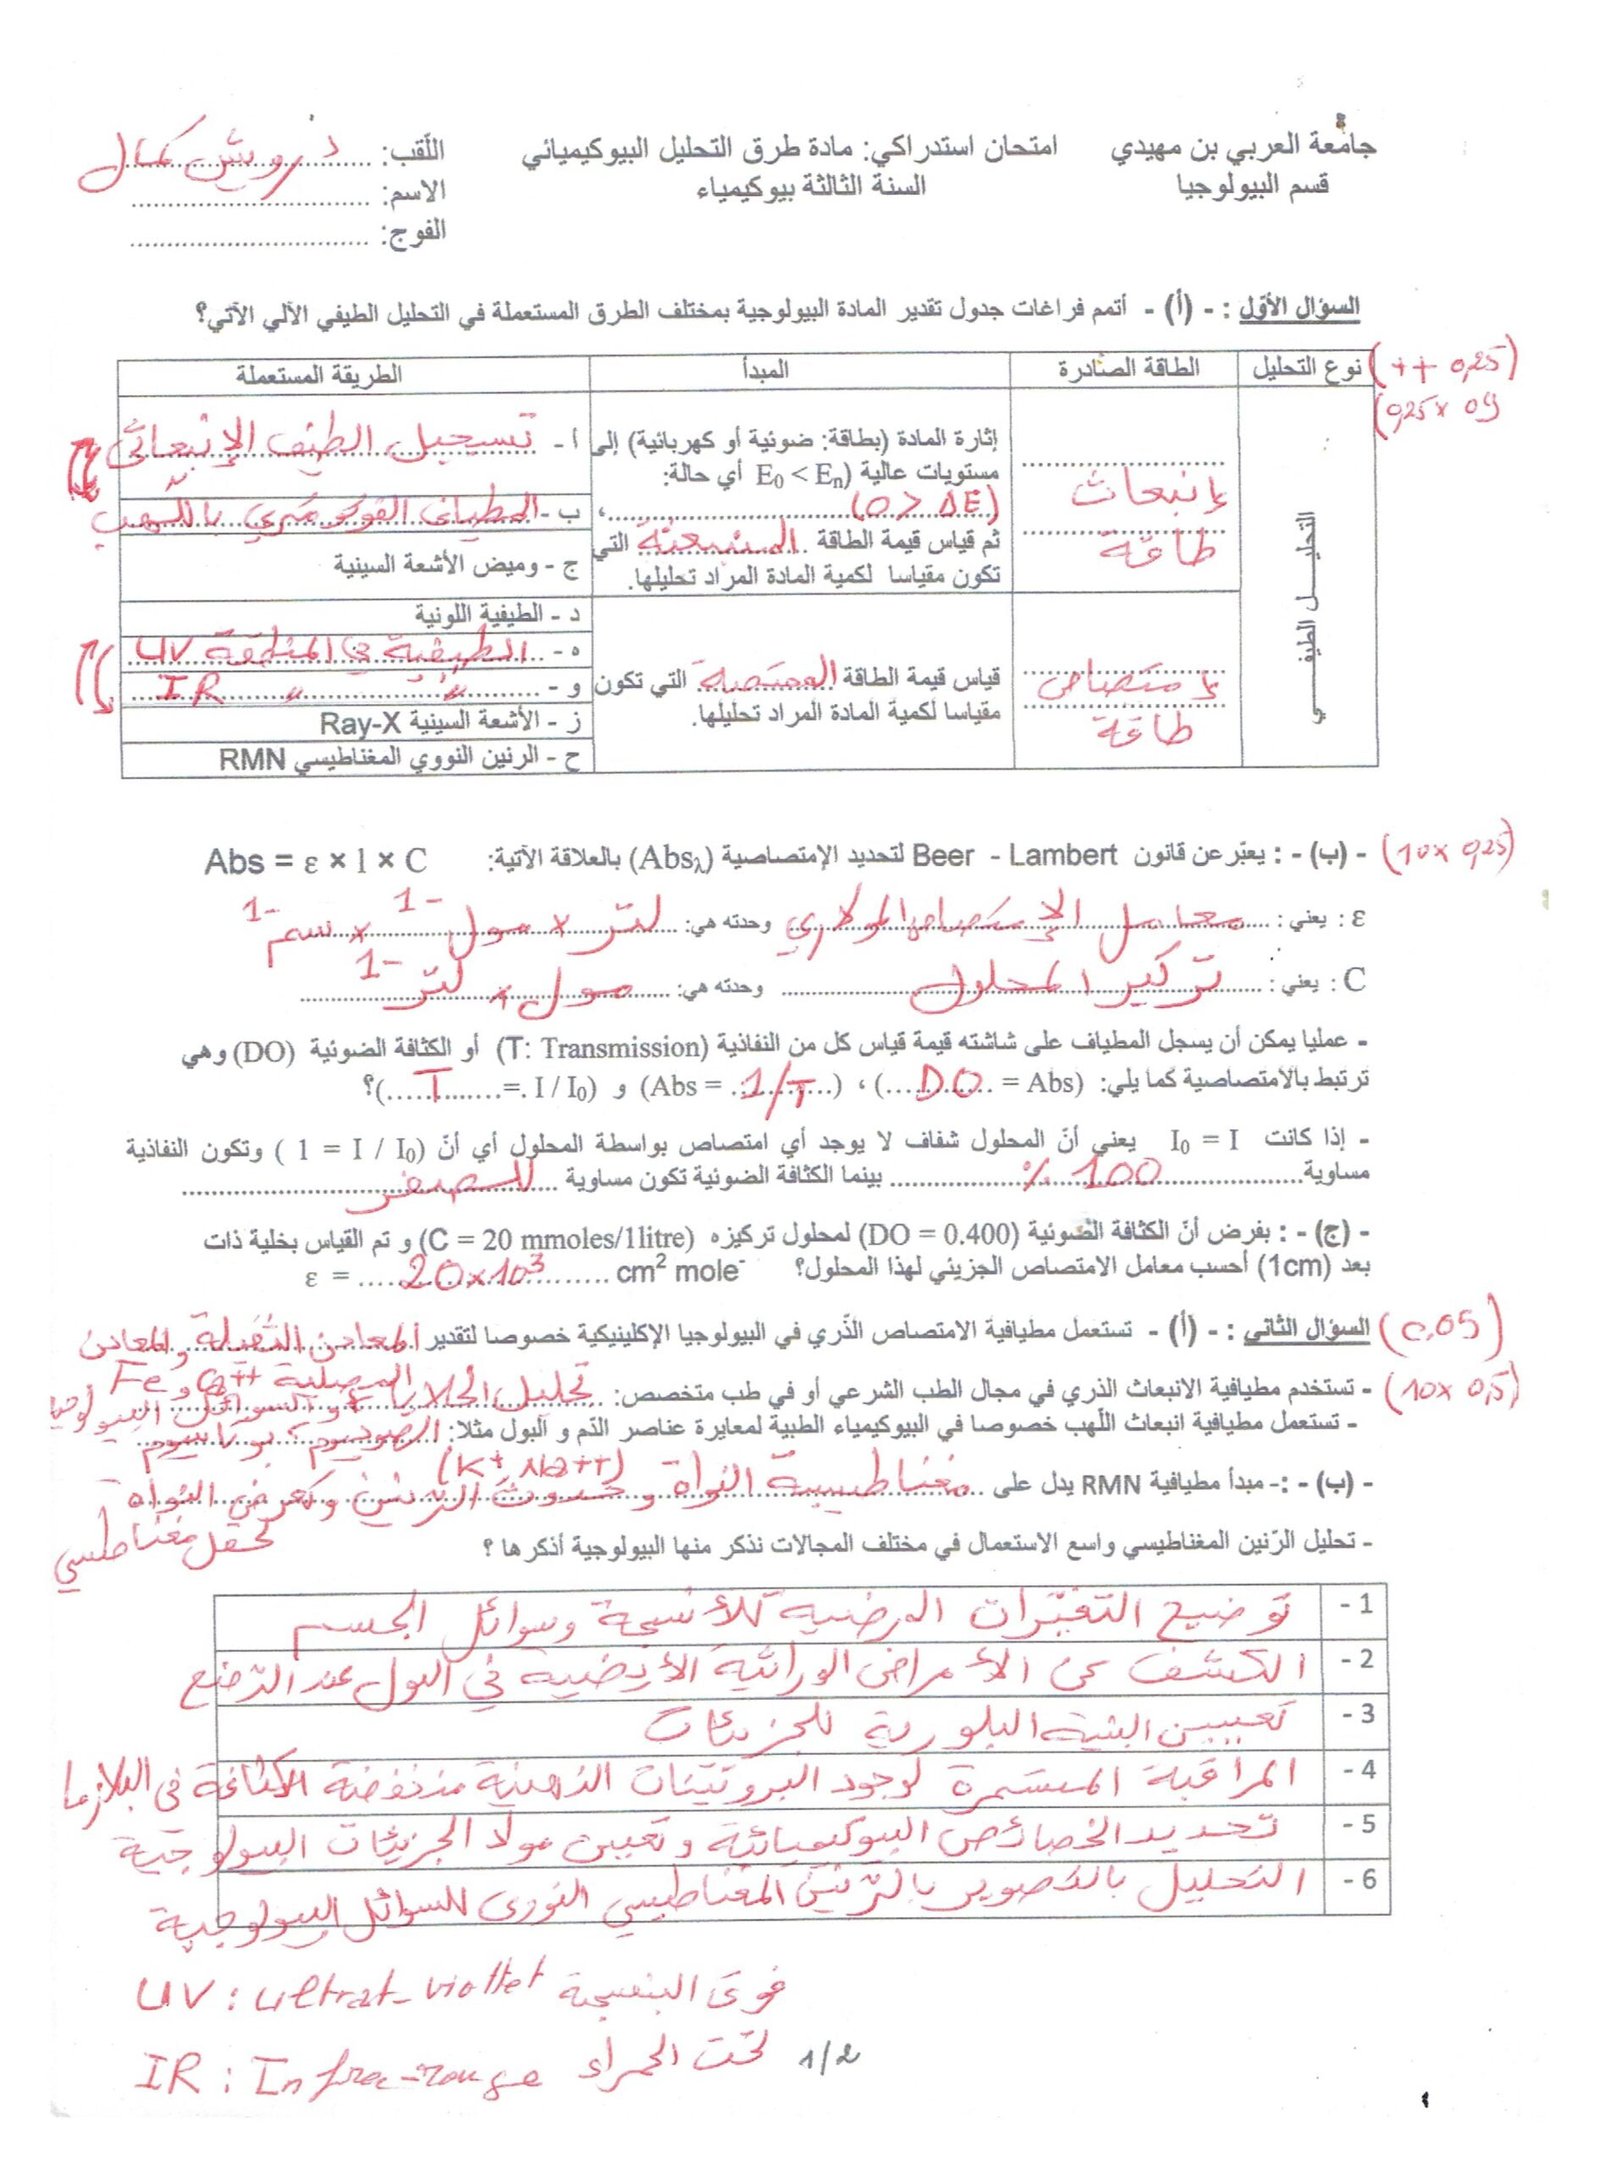 جامعة العربي بن مهيدي    امتحان استدراكي: مادة طرق التحليل البيوكيميائي    اللّقب: درويش كمال
قسم البيولوجيا    السنة الثالثة بيوكيمياء    الاسم: ..............
الفوج: ..............
السؤال الأوّل : - (أ) - أتمم فراغات جدول تقدير المادة البيولوجية بمختلف الطرق المستعملة في التحليل الطيفي الآلي الآتي؟
نوع التحليل    الطاقة الصّادرة    المبدأ    الطريقة المستعملة
(++ 0,25)
(0,25 x 09
التحليـــل الطيفـــي
إنبعاث
طاقة
إثارة المادة (بطاقة: ضوئية أو كهربائية) إلى
مستويات عالية (E0 < En أي حالة:
(0 > ΔE) ،
ثم قياس قيمة الطاقة المنبعثة التي
تكون مقياسا لكمية المادة المراد تحليلها.
أ - تسجيل الطيف الإنبعاثي
ب - المطيافي الفوتومتري باللهب
ج - وميض الأشعة السينية
إمتصاص
طاقة
قياس قيمة الطاقة الممتصة التي تكون
مقياسا لكمية المادة المراد تحليلها.
د - الطيفية اللونية
ه - الطيفية في المنطقة UV
و - " " IR
ز - الأشعة السينية Ray-X
ح - الرنين النووي المغناطيسي RMN
(10 x 0,25) - (ب) - : يعبّر عن قانون Beer - Lambert لتحديد الإمتصاصية (Absλ) بالعلاقة الآتية: Abs = ε × l × C
ε : يعني : معامل الإمتصاص المولاري وحدته هي: لتر x مول -1 x سم -1
C : يعني : تركيز المحلول وحدته هي: مول x لتر -1
- عمليا يمكن أن يسجل المطياف على شاشته قيمة قياس كل من النفاذية (T: Transmission) أو الكثافة الضوئية (DO) وهي
ترتبط بالامتصاصية كما يلي: (Abs = DO) ، (Abs = 1/T) و (I / I0 = T)؟
- إذا كانت I0 = I يعني أنّ المحلول شفاف لا يوجد أي امتصاص بواسطة المحلول أي أنّ (1 = I / I0) وتكون النفاذية
مساوية 100 % بينما الكثافة الضوئية تكون مساوية للصفر
- (ج) - : بفرض أنّ الكثافة الضوئية (DO = 0.400) لمحلول تركيزه (C = 20 mmoles/1litre) و تم القياس بخلية ذات
بعد (1cm) أحسب معامل الامتصاص الجزيئي لهذا المحلول؟ ε = 20x10³ cm² mole-
(0,05) السؤال الثاني : - (أ) - تستعمل مطيافية الامتصاص الذّري في البيولوجيا الإكلينيكية خصوصا لتقدير المعادن الثقيلة والمعادن
المصلية Ca++ و Fe
(10 x 0,5) - تستخدم مطيافية الانبعاث الذري في مجال الطب الشرعي أو في طب متخصص: تحليل الخلايا والسوائل البيولوجية
- تستعمل مطيافية انبعاث اللّهب خصوصا في البيوكيمياء الطبية لمعايرة عناصر الدّم و البول مثلا: الصوديوم، بوتاسيوم
(K+ Na++)
- (ب) - :- مبدأ مطيافية RMN يدل على مغناطيسية النواة وحدوث الرنين وتعرض النواة
لحقل مغناطيسي
- تحليل الرّنين المغناطيسي واسع الاستعمال في مختلف المجالات نذكر منها البيولوجية أذكرها ؟
1 - توضيح التغيّرات المرضية للأنسجة وسوائل الجسم
2 - الكشف عن الأمراض الوراثية الأيضية في البول عند الرضع
3 - تعيين البنية البلورية للجزيئات
4 - المراقبة المستمرة لوجود البروتينات الدهنية منخفضة الكثافة في البلازما
5 - تحديد الخصائص البيوكيميائية وتعيين مولا الجزيئات البيولوجية
6 - التحليل بالتصوير بالرّنين المغناطيسي النووي للسوائل البيولوجية
UV : ultrat-viollet فوق البنفسجية
IR : Infra-rouge تحت الحمراء
1/2